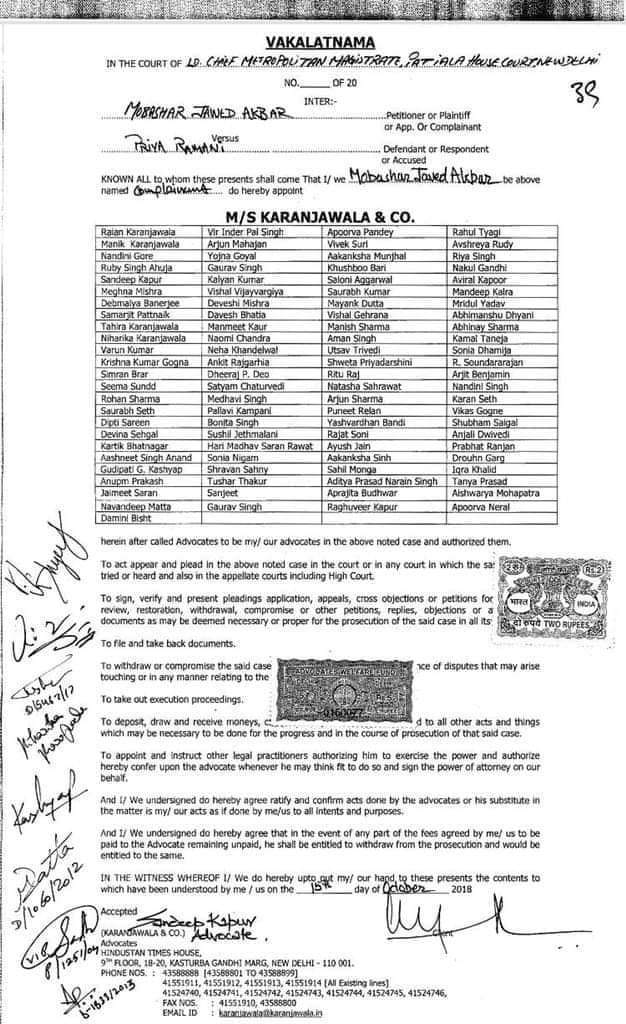 VAKALATNAMA
IN THE COURT OF LD. CHIEF METROPOLITAN MAGISTRATE, PATIALA HOUSE COURT, NEW DELHI
NO.______ OF 20
39
INTER:-
MOBASHAR JAWED AKBAR Petitioner or Plaintiff
or App. Or Complainant
Versus
PRIYA RAMANI Defendant or Respondent
or Accused
KNOWN ALL to whom these presents shall come That I/ we Mobashar Jawed Akbar be above
named Complainant do hereby appoint
M/S KARANJAWALA & CO.
Raian Karanjawala Vir Inder Pal Singh Apoorva Pandey Rahul Tyagi
Manik Karanjawala Arjun Mahajan Vivek Suri Avshreya Rudy
Nandini Gore Yojna Goyal Aakanksha Munjhal Riya Singh
Ruby Singh Ahuja Gaurav Singh Khushboo Bari Nakul Gandhi
Sandeep Kapur Kalyan Kumar Saloni Aggarwal Aviral Kapoor
Meghna Mishra Vishal Vijayvargiya Saurabh Kumar Mandeep Kalra
Debmalya Banerjee Deveshi Mishra Mayank Dutta Mridul Yadav
Samarjit Pattnaik Davesh Bhatia Vishal Gehrana Abhimanshu Dhyani
Tahira Karanjawala Manmeet Kaur Manish Sharma Abhinay Sharma
Niharika Karanjawala Naomi Chandra Aman Singh Kamal Taneja
Varun Kumar Neha Khandelwal Utsav Trivedi Sonia Dhamija
Krishna Kumar Gogna Ankit Rajgarhia Shweta Priyadarshini R. Soundararajan
Simran Brar Dheeraj P. Deo Ritu Raj Arjit Benjamin
Seema Sundd Satyam Chaturvedi Natasha Sahrawat Nandini Singh
Rohan Sharma Medhavi Singh Arjun Sharma Karan Seth
Saurabh Seth Pallavi Kampani Puneet Relan Vikas Gogne
Dipti Sareen Bonita Singh Yashvardhan Bandi Shubham Saigal
Devina Sehgal Sushil Jethmalani Rajat Soni Anjali Dwivedi
Kartik Bhatnagar Hari Madhav Saran Rawat Ayush Jain Prabhat Ranjan
Aashneet Singh Anand Sonia Nigam Aakanksha Sinh Drouhn Garg
Gudipati G. Kashyap Shravan Sahny Sahil Monga Iqra Khalid
Anupm Prakash Tushar Thakur Aditya Prasad Narain Singh Tanya Prasad
Jaimeet Saran Sanjeet Aprajita Budhwar Aishwarya Mohapatra
Navandeep Matta Gaurav Singh Raghuveer Kapur Apoorva Neral
Damini Bisht
herein after called Advocates to be my/ our advocates in the above noted case and authorized them.
To act appear and plead in the above noted case in the court or in any court in which the sa
tried or heard and also in the appellate courts including High Court.
To sign, verify and present pleadings application, appeals, cross objections or petitions for
review, restoration, withdrawal, compromise or other petitions, replies, objections or a
documents as may be deemed necessary or proper for the prosecution of the said case in all its
RS.2
भारत INDIA
दो रुपये TWO RUPEES
To file and take back documents.
To withdraw or compromise the said case nce of disputes that may arise
touching or in any manner relating to the
ADVOCATES WELFARE FUND
To take out execution proceedings.
To deposit, draw and receive moneys, c d to all other acts and things
which may be necessary to be done for the progress and in the course of prosecution of that said case.
To appoint and instruct other legal practitioners authorizing him to exercise the power and authorize
hereby confer upon the advocate whenever he may think fit to do so and sign the power of attorney on our
behalf.
And I/ We undersigned do hereby agree ratify and confirm acts done by the advocates or his substitute in
the matter is my/ our acts as if done by me/us to all intents and purposes.
And I/ We undersigned do hereby agree that in the event of any part of the fees agreed by me/ us to be
paid to the Advocate remaining unpaid, he shall be entitled to withdraw from the prosecution and would be
entitled to the same.
IN THE WITNESS WHEREOF I/ We do hereby upto put my/ our hand to these presents the contents to
which have been understood by me / us on the 15th day of October 2018
Kashyap
D/1060/2012
Accepted
Sandeep Kapur
(KARANJAWALA & CO.) Advocate.
Client
Advocates
HINDUSTAN TIMES HOUSE,
9TH FLOOR, 18-20, KASTURBA GANDHI MARG, NEW DELHI - 110 001.
PHONE NOS. : 43588888 [43588801 TO 43588899]
41551911, 41551912, 41551913, 41551914 [All Existing lines]
41524740, 41524741, 41524742, 41524743, 41524744, 41524745, 41524746,
FAX NOS. : 41551910, 43588800
EMAIL ID : karanjawala@karanjawala.in